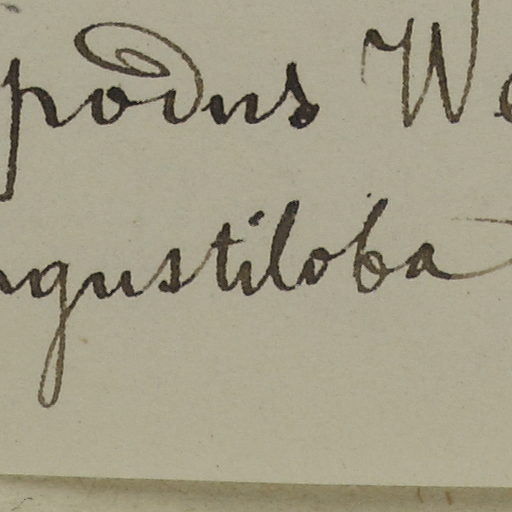 podus We
ngustiloba